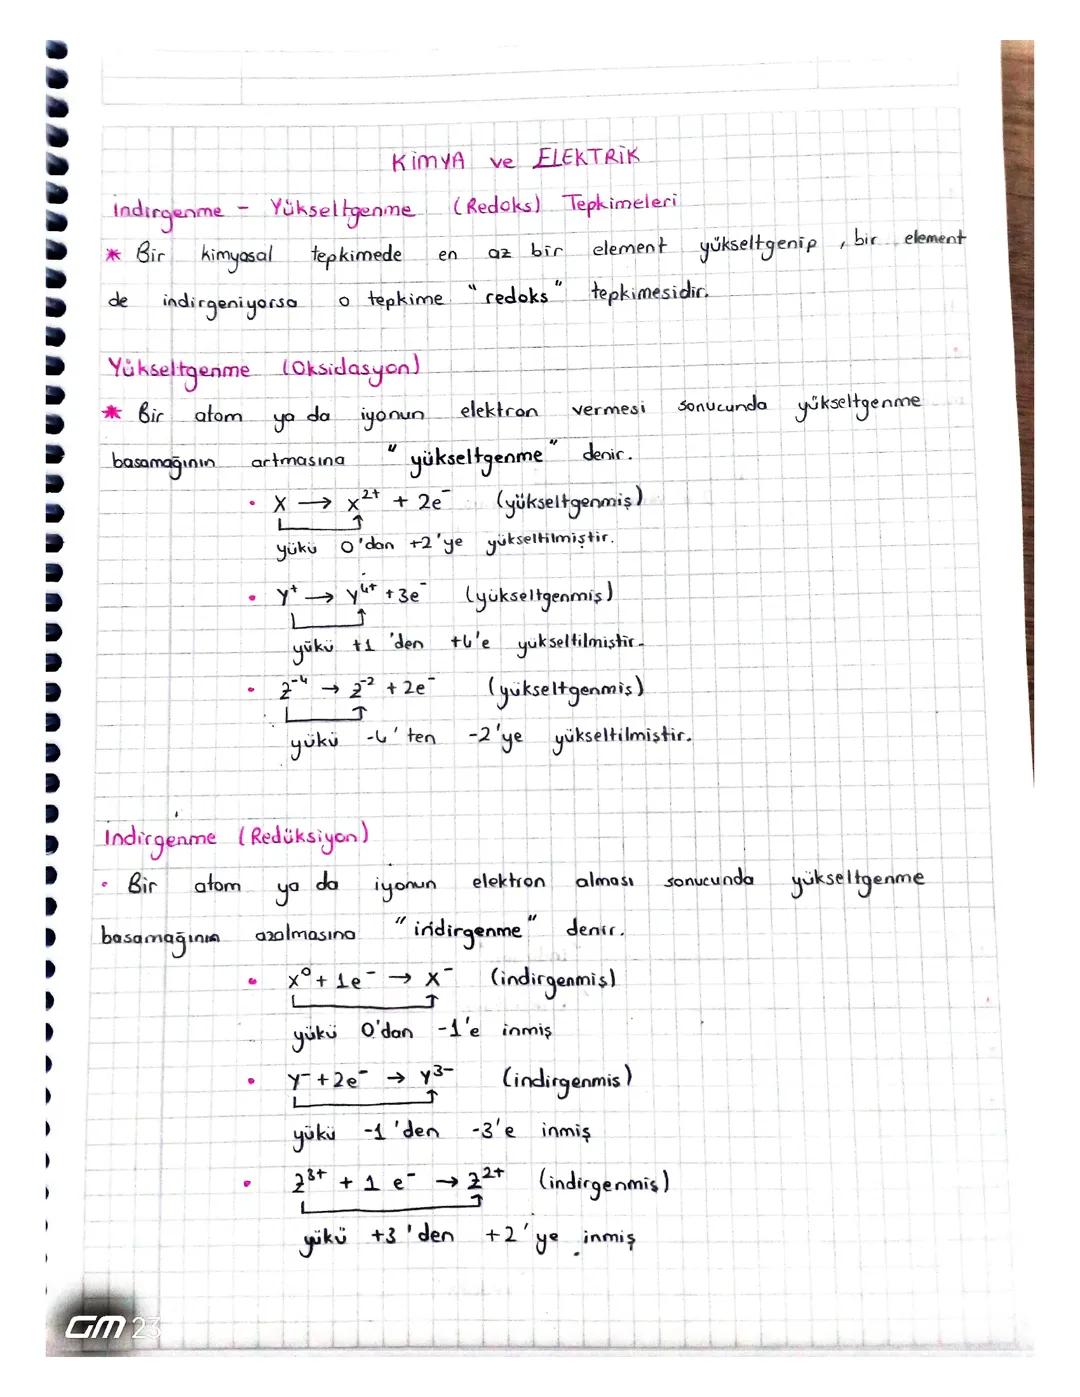 KİMYA ve ELEKTRİK
İndirgenme - Yükseltgenme (Redoks) Tepkimeleri
* Bir kimyasal tepkimede en az bir element yükseltgenip, bir element
de indirgeniyorsa o tepkime "redoks" tepkimesidir.
Yükseltgenme (Oksidasyon)
* Bir atom ya da iyonun elektron vermesi sonucunda yükseltgenme
basamağının artmasına "yükseltgenme" denir.
• X → X²⁺ + 2e⁻ (yükseltgenmiş)
yükü 0'dan +2'ye yükseltilmiştir.
• Y⁺ → Y⁴⁺ + 3e⁻ (yükseltgenmiş)
yükü +1'den +4'e yükseltilmiştir.
• Z⁻⁴ → Z⁻² + 2e⁻ (yükseltgenmiş)
yükü -4'ten -2'ye yükseltilmiştir.
İndirgenme (Redüksiyon)
• Bir atom ya da iyonun elektron alması sonucunda yükseltgenme
basamağının azalmasına "indirgenme" denir.
• X⁰ + 1e⁻ → X⁻ (indirgenmiş)
yükü 0'dan -1'e inmiş
• Y⁻ + 2e⁻ → Y³⁻ (indirgenmiş)
yükü -1'den -3'e inmiş
• Z³⁺ + 1 e⁻ → Z²⁺ (indirgenmiş)
yükü +3'den +2'ye inmiş
GM 23